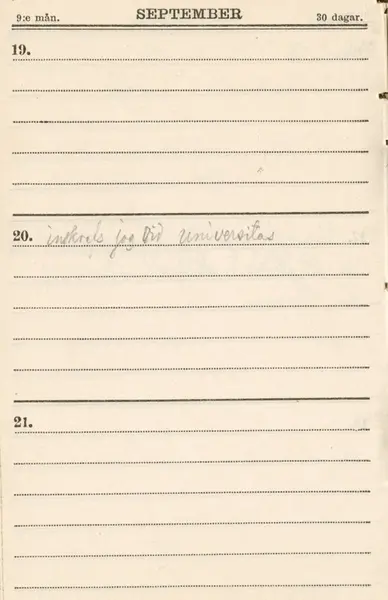 9:e mån. SEPTEMBER 30 dagar.
19.
20. inskrefs jag vid universitas
21.